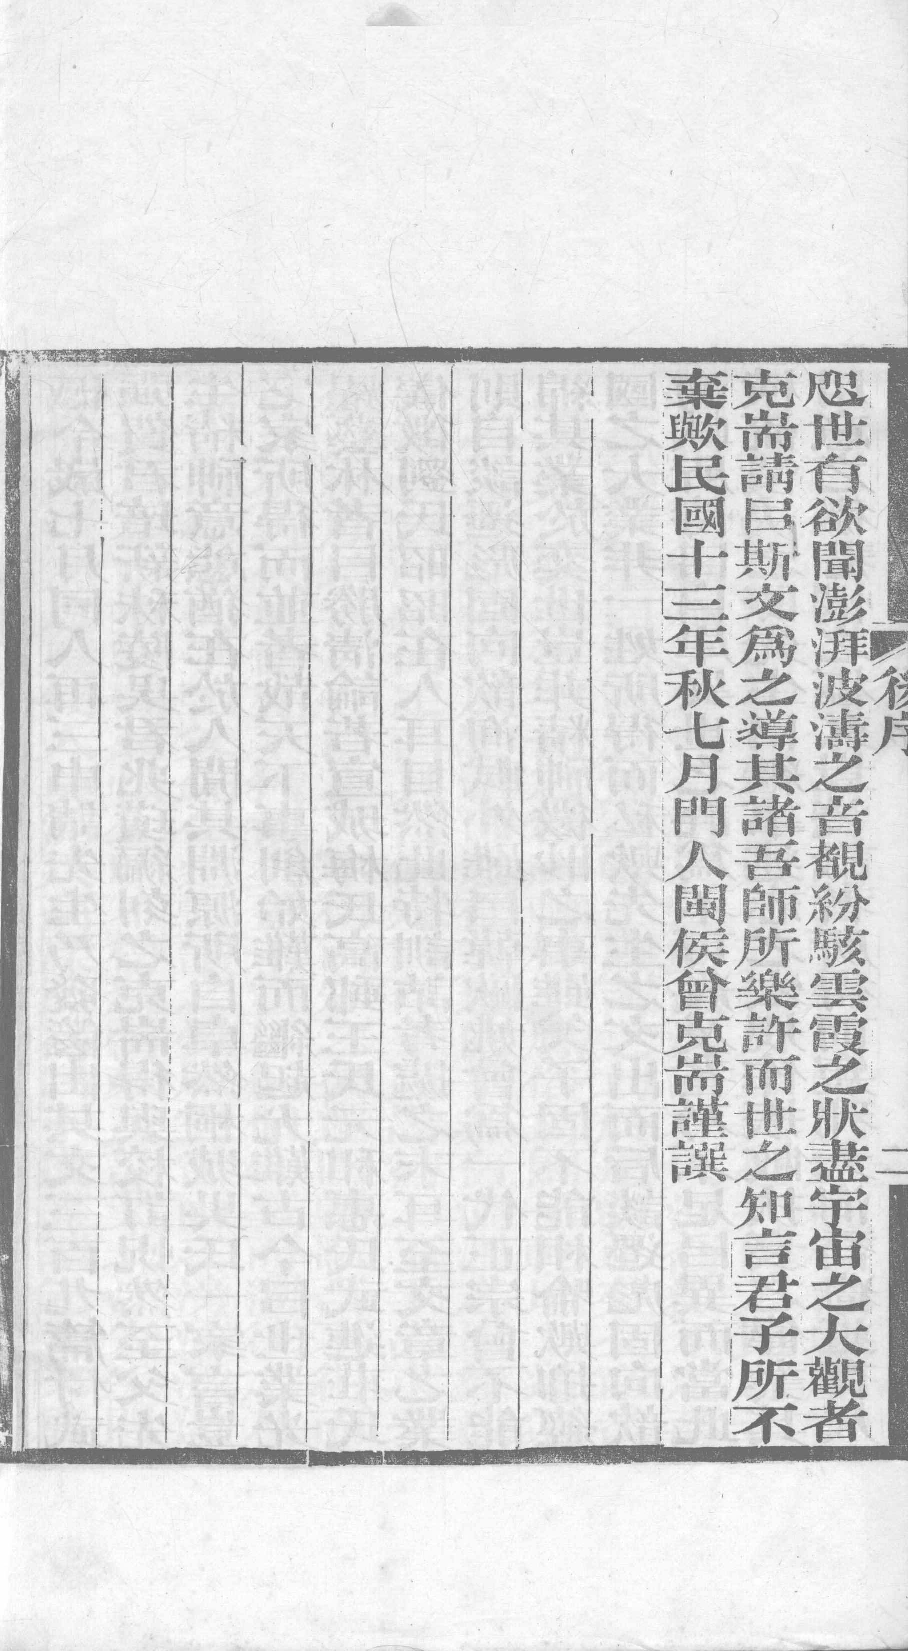 咫世有欲聞澎湃波濤之音覩紛駭雲霞之狀盡宇宙之大觀者
克耑請㠯斯文爲之導其諸吾師所樂許而世之知言君子所不
棄歟民國十三年秋七月門人閩侯曾克耑謹譔
後序
二